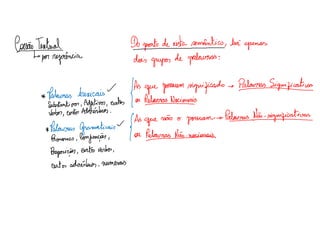 Coesão Textual
↳ por referência
* Palavras Lexicais ✓
Substantivos, Adjetivos, certos
verbos, certos Advérbios.
* Palavras Gramaticais ✓
Pronomes, Conjunções,
Preposições, certos verbos,
certos advérbios, numerais
Do ponto de vista semântico, há apenas
dois grupos de palavras:
As que possuem significado → Palavras Significativas
ou Palavras Nocionais
As que não o possuem → Palavras Não-significativas
ou Palavras Não nocionais.